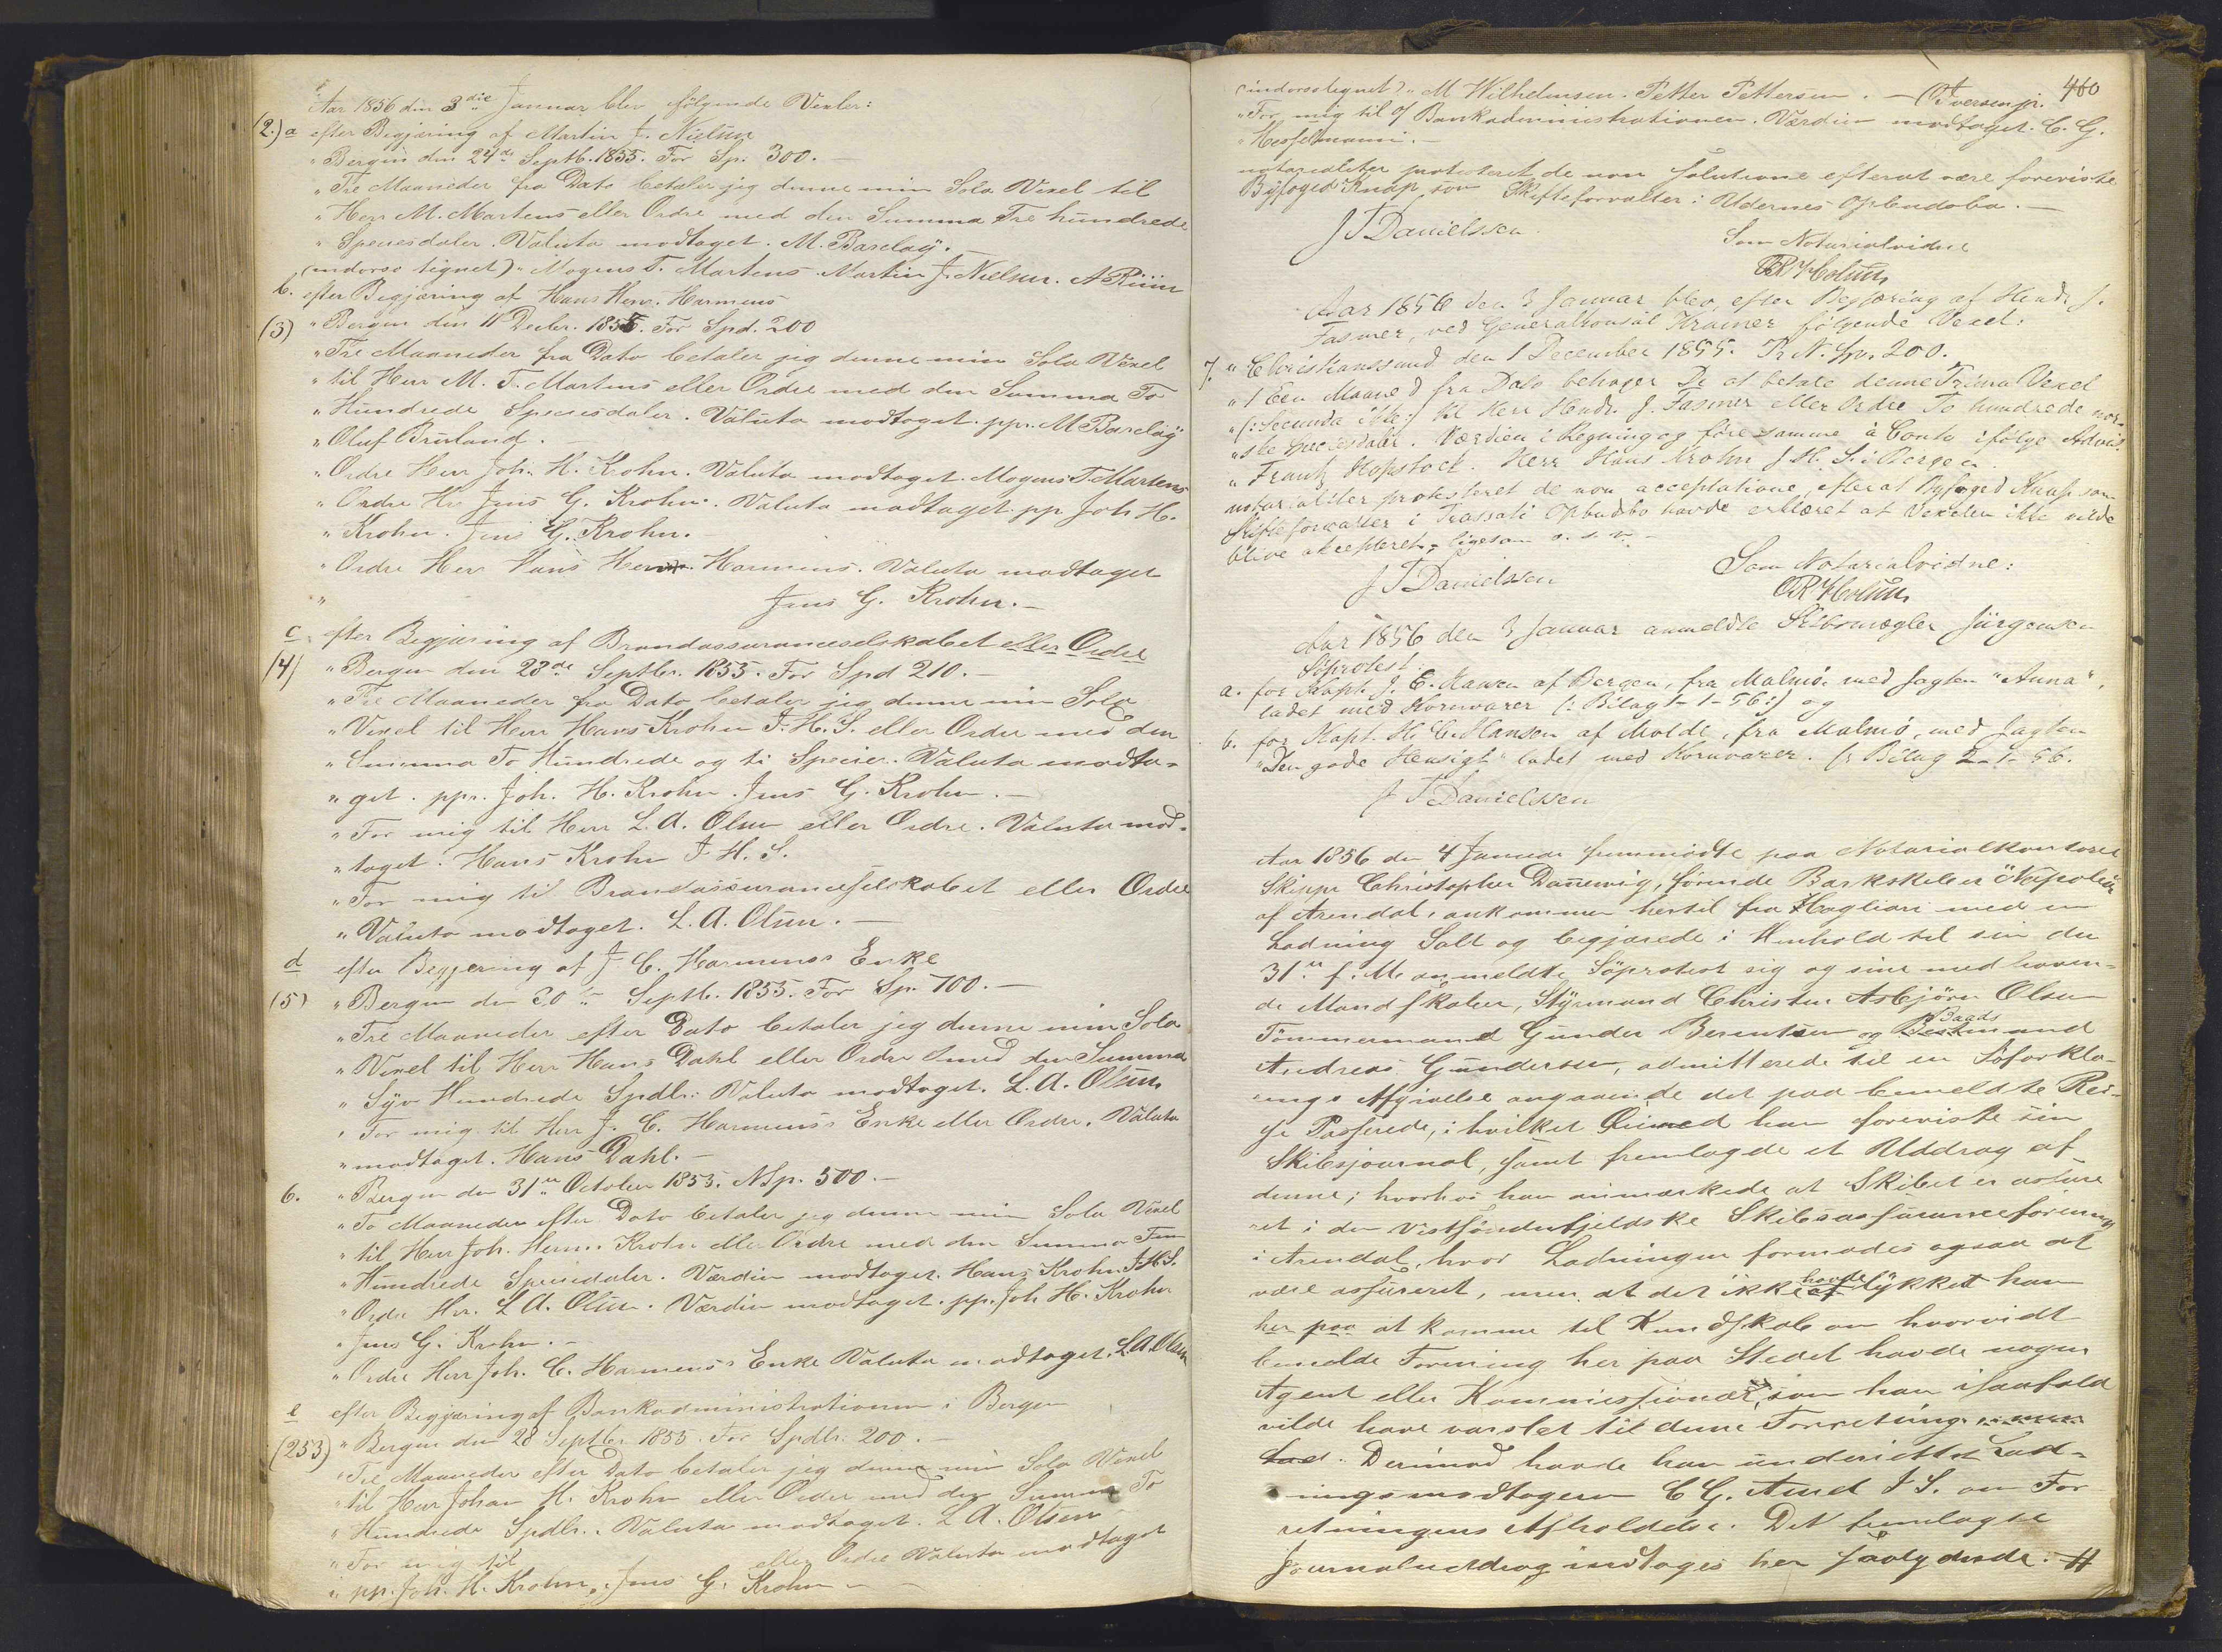 Aar 1856 den 3die Januar blev følgende Vexler:
(2.) a efter Begjæring af Martin J. Nielsen
"Bergen den 24de Septb. 1855. For Sp. 300.—
"Tre Maaneder fra Dato betaler jeg denne min Sola Vexel til
"Herr M. Martens eller Ordre med den Summa Tre hundrede
"Speciesdaler. Valuta modtaget. M. Barclay.
(indorso tegnet) "Mogens T. Martens. Martin J. Nielsen.
b. efter Begjæring af Hans Herm. Harmens
(3) "Bergen den 11 Decbr. 1855. For Spd. 200
"Tre Maaneder fra Dato betaler jeg denne min Sola Vexel
"til Herr M. T. Martens eller Ordre med den Summa To
"Hundrede Speciesdaler. Valuta modtaget. ppr. M Barclay
"Oluf Bruland.
"Ordre Herr Joh. H. Krohn. Valuta modtaget. Mogens T. Martens
"Ordre Hr. Jens G. Krohn. Valuta modtaget. pp Joh H.
"Krohn. Jens G. Krohn.
"Ordre Herr Hans Herm. Harmens. Valuta modtaget
" Jens G. Krohn.—
c. efter Begjæring af Brandassuranceselskabet eller Ordre
(4) "Bergen den 28de Septbr. 1855. For Spd 210.—
"Tre Maaneder fra Dato betaler jeg denne min Sola
"Vexel til Herr Hans Krohn J. H. S. eller Ordre med den
"Summa To Hundrede og ti Specier. Valuta modta=
"get. ppr. Joh. H. Krohn. Jens G. Krohn.—
"For mig til Herr L. A. Olsen eller Ordre. Valuta mod=
"taget. Hans Krohn J. H. S.
"For mig til Brandassuranceselskabet eller Ordre
"Valuta modtaget. L. A. Olsen.—
d efter Begjering af J. C. Harmens's Enke
(5) "Bergen den Septb. 1855. For Sp. 700.—
"Tre Maaneder efter Dato betaler jeg denne min Sola
"Vexel til Herr Hans Dahl eller Ordre med den Summa
"Syv Hundrede Spdlr. Valuta modtaget. L. A. Olsen
"For mig til Herr J. C. Harmens's Enke eller Ordre. Valuta
"modtaget. Hans Dahl.—
6. "Bergen den 31te October 1855. NSp. 500.—
"To Maaneder efter Dato betaler jeg denne min Sola Vexel
"til Herr Joh. Herm. Krohn eller Ordre med den Summa Fem
"Hundrede Speciesdaler. Værdien modtaget. Hans Krohn J.H.S.
"Ordre Hr. L. A. Olsen. Værdien modtaget. pp. Joh. H. Krohn
"Jens G. Krohn.—
"Ordre Herr Joh. C. Harmens's Enke Valuta modtaget. L. A. Olsen
e efter Begjæring af Bankadministrationen i Bergen
(253) "Bergen den 28 Septbr. 1855. For Spdlr. 200.—
"Tre Maaneder efter Dato betaler jeg denne min Sola Vexel
"til Herr Johan H. Krohn eller Ordre med den Summa To
"Hundrede Spdlr. Valuta modtaget. L. A. Olsen
"For mig til eller Ordre Valuta modtaget
" pp. Joh. H. Krohn, Jens G. Krohn—
460
(indorso tegnet) "M Wilhelmsen. Petter Pettersen.— Iversen jr.
"For mig til Bankadministrationen. Værdien modtaget. C. G.
"Hesselmann.—
notarialiter protesteret de non solutione efterat være foreviste
Byfoged Knap som Skifteforvalter i Udernes Opbudsbo.—
J T Danielssen
Som Notarialvidne
Aar 1856 den 3 Januar blev, efter Begjæring af Hendr. J.
Fasmer, ved Generalkonsul Kramer følgende Vexel:
7. "Christianssund den 1 December 1855. Pr N. Sp. 200.
"1 Een Maaned fra Dato behager De at betale denne Prima Vexel
"(: Secunda ikke:) til Herr Hendr. J. Fasmer eller Ordre To hundrede nor-
"ske Speciesdaler. Værdien i Regning og føre samme à Conto ifølge Advis.
"Frantz Klopstock. Herr Hans Krohn J. H. S. i Bergen.
notarialiter protesteret de non acceptatione, efterat Byfoged Knap som
Skifteforvalter i Trassati Opbudsbo havde erklæret at Vexelen ikke vilde
blive accepteret,- ligesom o. s. v.—
J T Danielssen
Som Notarialvidne:
Aar 1856 den 3 Januar anmeldte Skibsmægler Jürgensen
Søprotest.
a. for Kapt. J. E. Hansen af Bergen, fra Malmö, med Jagten "Anna",
ladet med Kornvarer (: Bilag 1-1-56:) og
b. for Kapt. H. C. Hansen af Molde, fra Malmö, med Jagten
"Den gode Hensigt" ladet med Kornvarer. (: Bilag 2-1-56.
J T Danielssen
Aar 1856 den 4 Januar fremmødte paa Notarialkontoret
Skipper Christopher Dannevig, førende Barkskibet "Napoleon
af Arendal, ankommen hertil fra Kagliari med en
Ladning Salt og begjærede i Henhold til sin den
31te f. M. anmeldte Søprotest sig og sine medhaven-
de Mandskaber, Styrmand Christen Asbjörn Olsen
Tømmermand Gunder Berentsen og Baadsmand
Andreas Gundersen, admitterede til en Søforkla-
rings Afgivelse angaaende det paa bemeldte Rei-
se Passerede, i hvilket Øiemed han foreviste sin
Skibsjournal, samt fremlagde et Uddrag af
denne; hvorhos han anmærkede at Skibet er assure
ret i den Vestsøndenfjeldske Skibsassuranceforening
i Arendal, hvor Ladningen formodes ogsaa at
være assureret, men at det ikke havde lykket ham
her paa at komme til Kundskab om hvorvidt
bemeldte Forening her paa Stedet havde nogen
Agent eller Kommissionær, som han isaafald
vilde have varslet til denne Forretning.
Derimod havde han underrettet Lad-
ningsmodtageren C G. Amd I S. om For
retningens Afholdelse. Det fremlagte
Journaludtog indtages her saalydende: #